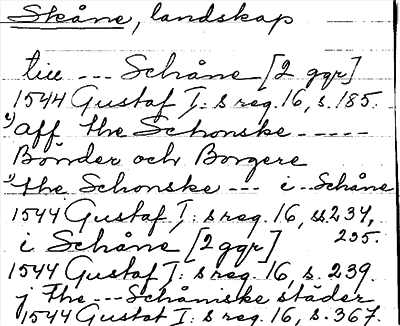 Skåne, landskap
till --- Schåne [2 ggr]
1544 Gustaf I: s reg. 16, s. 185.
1) aff the Schonske -----
Bönder och Borgere
1) the Schonske --- i -- Schåne
1544 Gustaf I: s reg. 16, ss. 234,
235.
i Schåne [2 ggr]
1544 Gustaf I: s reg. 16, s. 239.
j the --- Schåniske städer
1544 Gustaf I: s reg. 16, s. 367.